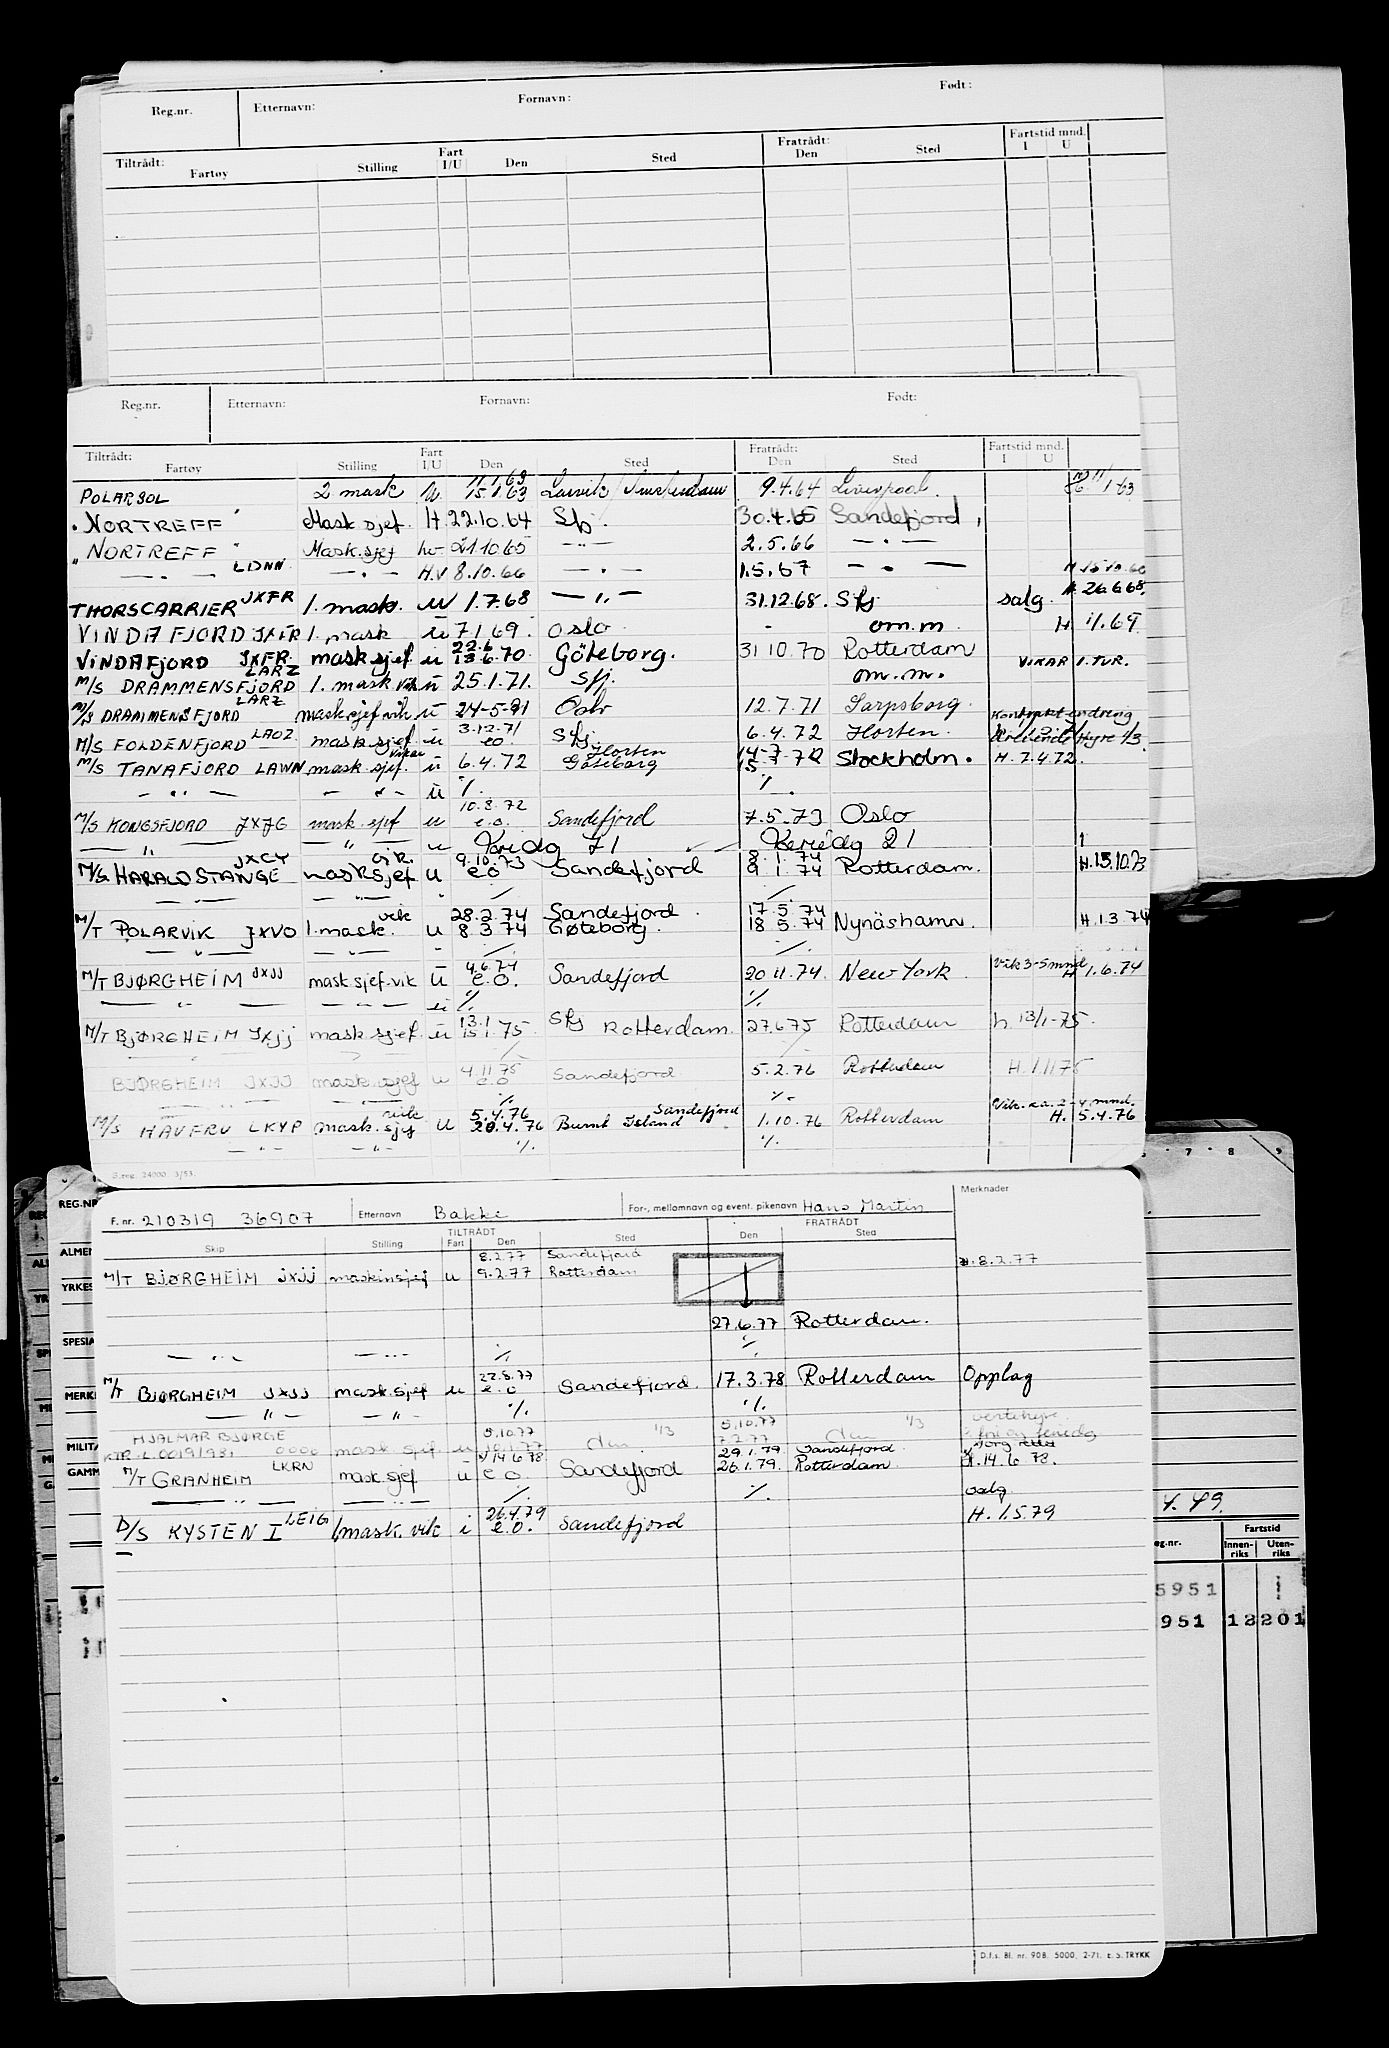 Reg.nr. Etternavn: Fornavn: Født:
Tiltrådt: Fartøy Stilling Fart I/U Den Sted Fratrådt: Den Sted Fartstid mnd. I U
Reg.nr. Etternavn: Fornavn: Født:
Tiltrådt: Fartøy Stilling Fart I/U Den Sted Fratrådt: Den Sted Fartstid mnd. I U
11.1.63
POLARSOL 2 mask 15.1.63 Larvik / Amsterdam 9.4.64 Liverpool. 11/1-63
NORTREFF Mask sjef. H. 22.10.64 Sfj. 30.4.65 Sandefjord
NORTREFF Mask.sjef hv 21.10.65 —"— 2.5.66 — " —
— " — LDNN — " — H.V 8.10.66 — " — 1.5.67 — " — H 15.10.66
THORSCARRIER JXFR 1. mask. uv 1.7.68 — " — 31.12.68. Sfj salg. H 26.6.68.
VINDAFJORD JXFR 1. mask ü 7.1.69. Oslo - om.m. H 1/1.69
22.6
VINDAFJORD JXFR mask sjef ü 13.6.70 Göteborg. 31 10.70 Rotterdam VIKAR 1. TUR.
M/S DRAMMENSFJORD LARZ 1. mask vik ü 25.1.71. Sfj. om.m.
M/S DRAMMENSFJORD LARZ mask sjef vik ü 24-5-71 Oslo 12.7.71 Sarpsborg. Kontraktendring
3.12.71
M/S FOLDENFJORD LAOZ mask sjef ü eo Sfj. 6.4.72 Horten. Hyre 1/3
vikar Horten 14-7
M/S TANAFJORD LAWN mask sjef. ü 6.4.72 Göteborg 15-7-72 Stockholm. H. 7.4.72.
— " — — " — ü ·/. ·/.
10.8.72
M/S KONGSFJORD JXJG mask sjef u e.o. Sandefjord 7.5.73 Oslo
— " — — " — u Veridg 71 Veridg 21
JXCY vik. 9.10.73 8.1.74
M/S HARALD STANGE mask sjef u eo Sandefjord 9 1.74 Rotterdam. H.13.10.73
— " — — " — ·/. ·/.
vik 28.2.74 Sandefjord 17.5.74
M/T POLARVIK JXVO 1. mask. u 8 3 74 Gøteborg. 18 5.74 Nynäshamn. H.1.3.74
— " — — " — ·/. ·/.
4.6.74
M/T BJØRGHEIM JXJJ mask sjef.vik ü e.o. Sandefjord 20 11.74. New York. Vik 3-5 mnd H 1.6.74
— " — — " — ü ·/. ·/.
13.1
M/T BJØRGHEIM JXJJ mask sjef. ü 15.1.75. Sfj Rotterdam. 27.6.75 Rotterdam h. 13/1-75.
4.11.75
BJØRGHEIM JXJJ mask.sjef u e.o Sandefjord 5.2.76 Rotterdam H.1.11.75
·/. ·/.
vik 5.4.76 Sandefjord Vik. ca. 2-4 mnd.
M/S HAVFRU LKYP mask.sjef u 20.4.76 Burnt Island 1.10.76 Rotterdam H. 5.4.76
— " — — " — ·/. ·/.
S.reg. 24000 3/53.
F. nr. 210319 36907 Etternavn Bakke For-, mellomnavn og event. pikenavn Hans Martin Merknader
TILTRÅDT FRATRÅDT
Skip Stilling Fart Den Sted Den Sted
8.2.77 Sandefjord
M/T BJØRGHEIM JXJJ maskinsjef u 9.2.77 Rotterdam H.8.2.77
27.6.77 Rotterdam.
— " — — " — ·/. ·/.
22.8.77
M/T BJØRGHEIM JXJJ mask.sjef u e.o Sandefjord. 17.3.78 Rotterdam Opplag
— " — — " — ·/. ·/.
HJALMAR BJØRGE 5.10.77 1/3 5.10.77 1/3
0000 mask.sjef
√14.6.78 29.1.79 Sandefjord
M/T GRANHEIM LKRN mask.sjef ü e o. Sandefjord 26.1.79. Rotterdam H.14.6.78.
— " — — " — ·/. ·/. salg
26.4.79
D/S KYSTEN I LEIG 1mask. vik i e.o. Sandefjord H. 1.5.79
D.f.s. Bl. nr. 908. 5000, 2-71. E. S. TRYKK
REG.NR
ALMEN
YRKES
SPESIA
MERK
MILITÆ
GAMM
7 8 9
4.49.
eg.nr. Fartstid
Innen-riks Uten-riks
5951
951 12 201